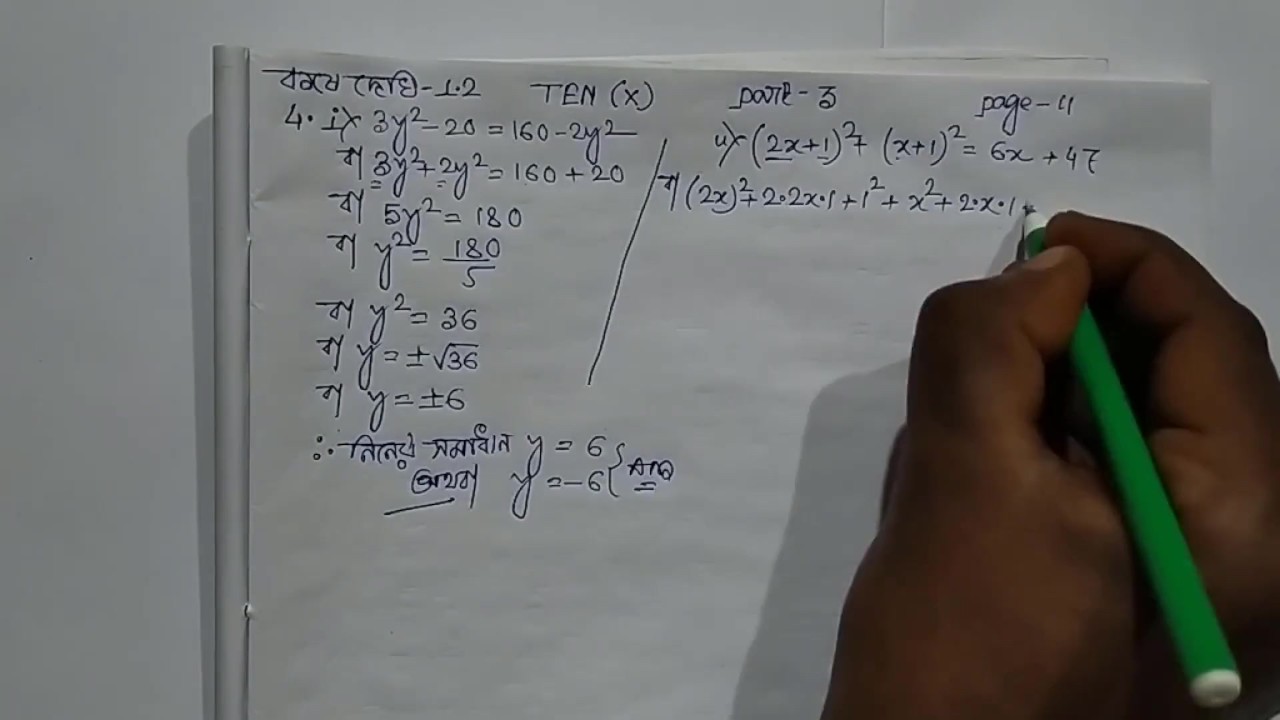 কষে দেখি-1.2 TEN (X) part-3 page-4
4. i) 3y²-20=160-2y²
বা 3y²+2y²=160+20
বা 5y²=180
বা y²=180/5
বা y²=36
বা y=±√36
বা y=±6
∴ নির্নেয় সমাধান y=6
অথবা y=-6 } Ans
ii) (2x+1)²+(x+1)²=6x+47
বা (2x)²+2·2x·1+1²+x²+2·x·1+